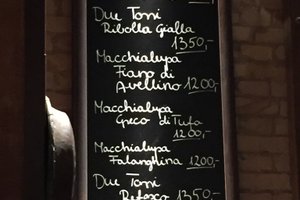 Due Toni
Ribolla Gialla
1350,-
Macchialupa
Fiano di
Avellino 1200,-
Macchialupa
Greco di Tufo
1200,-
Macchialupa
Falanghina 1200,-
Due Toni
Refosco 1350,-